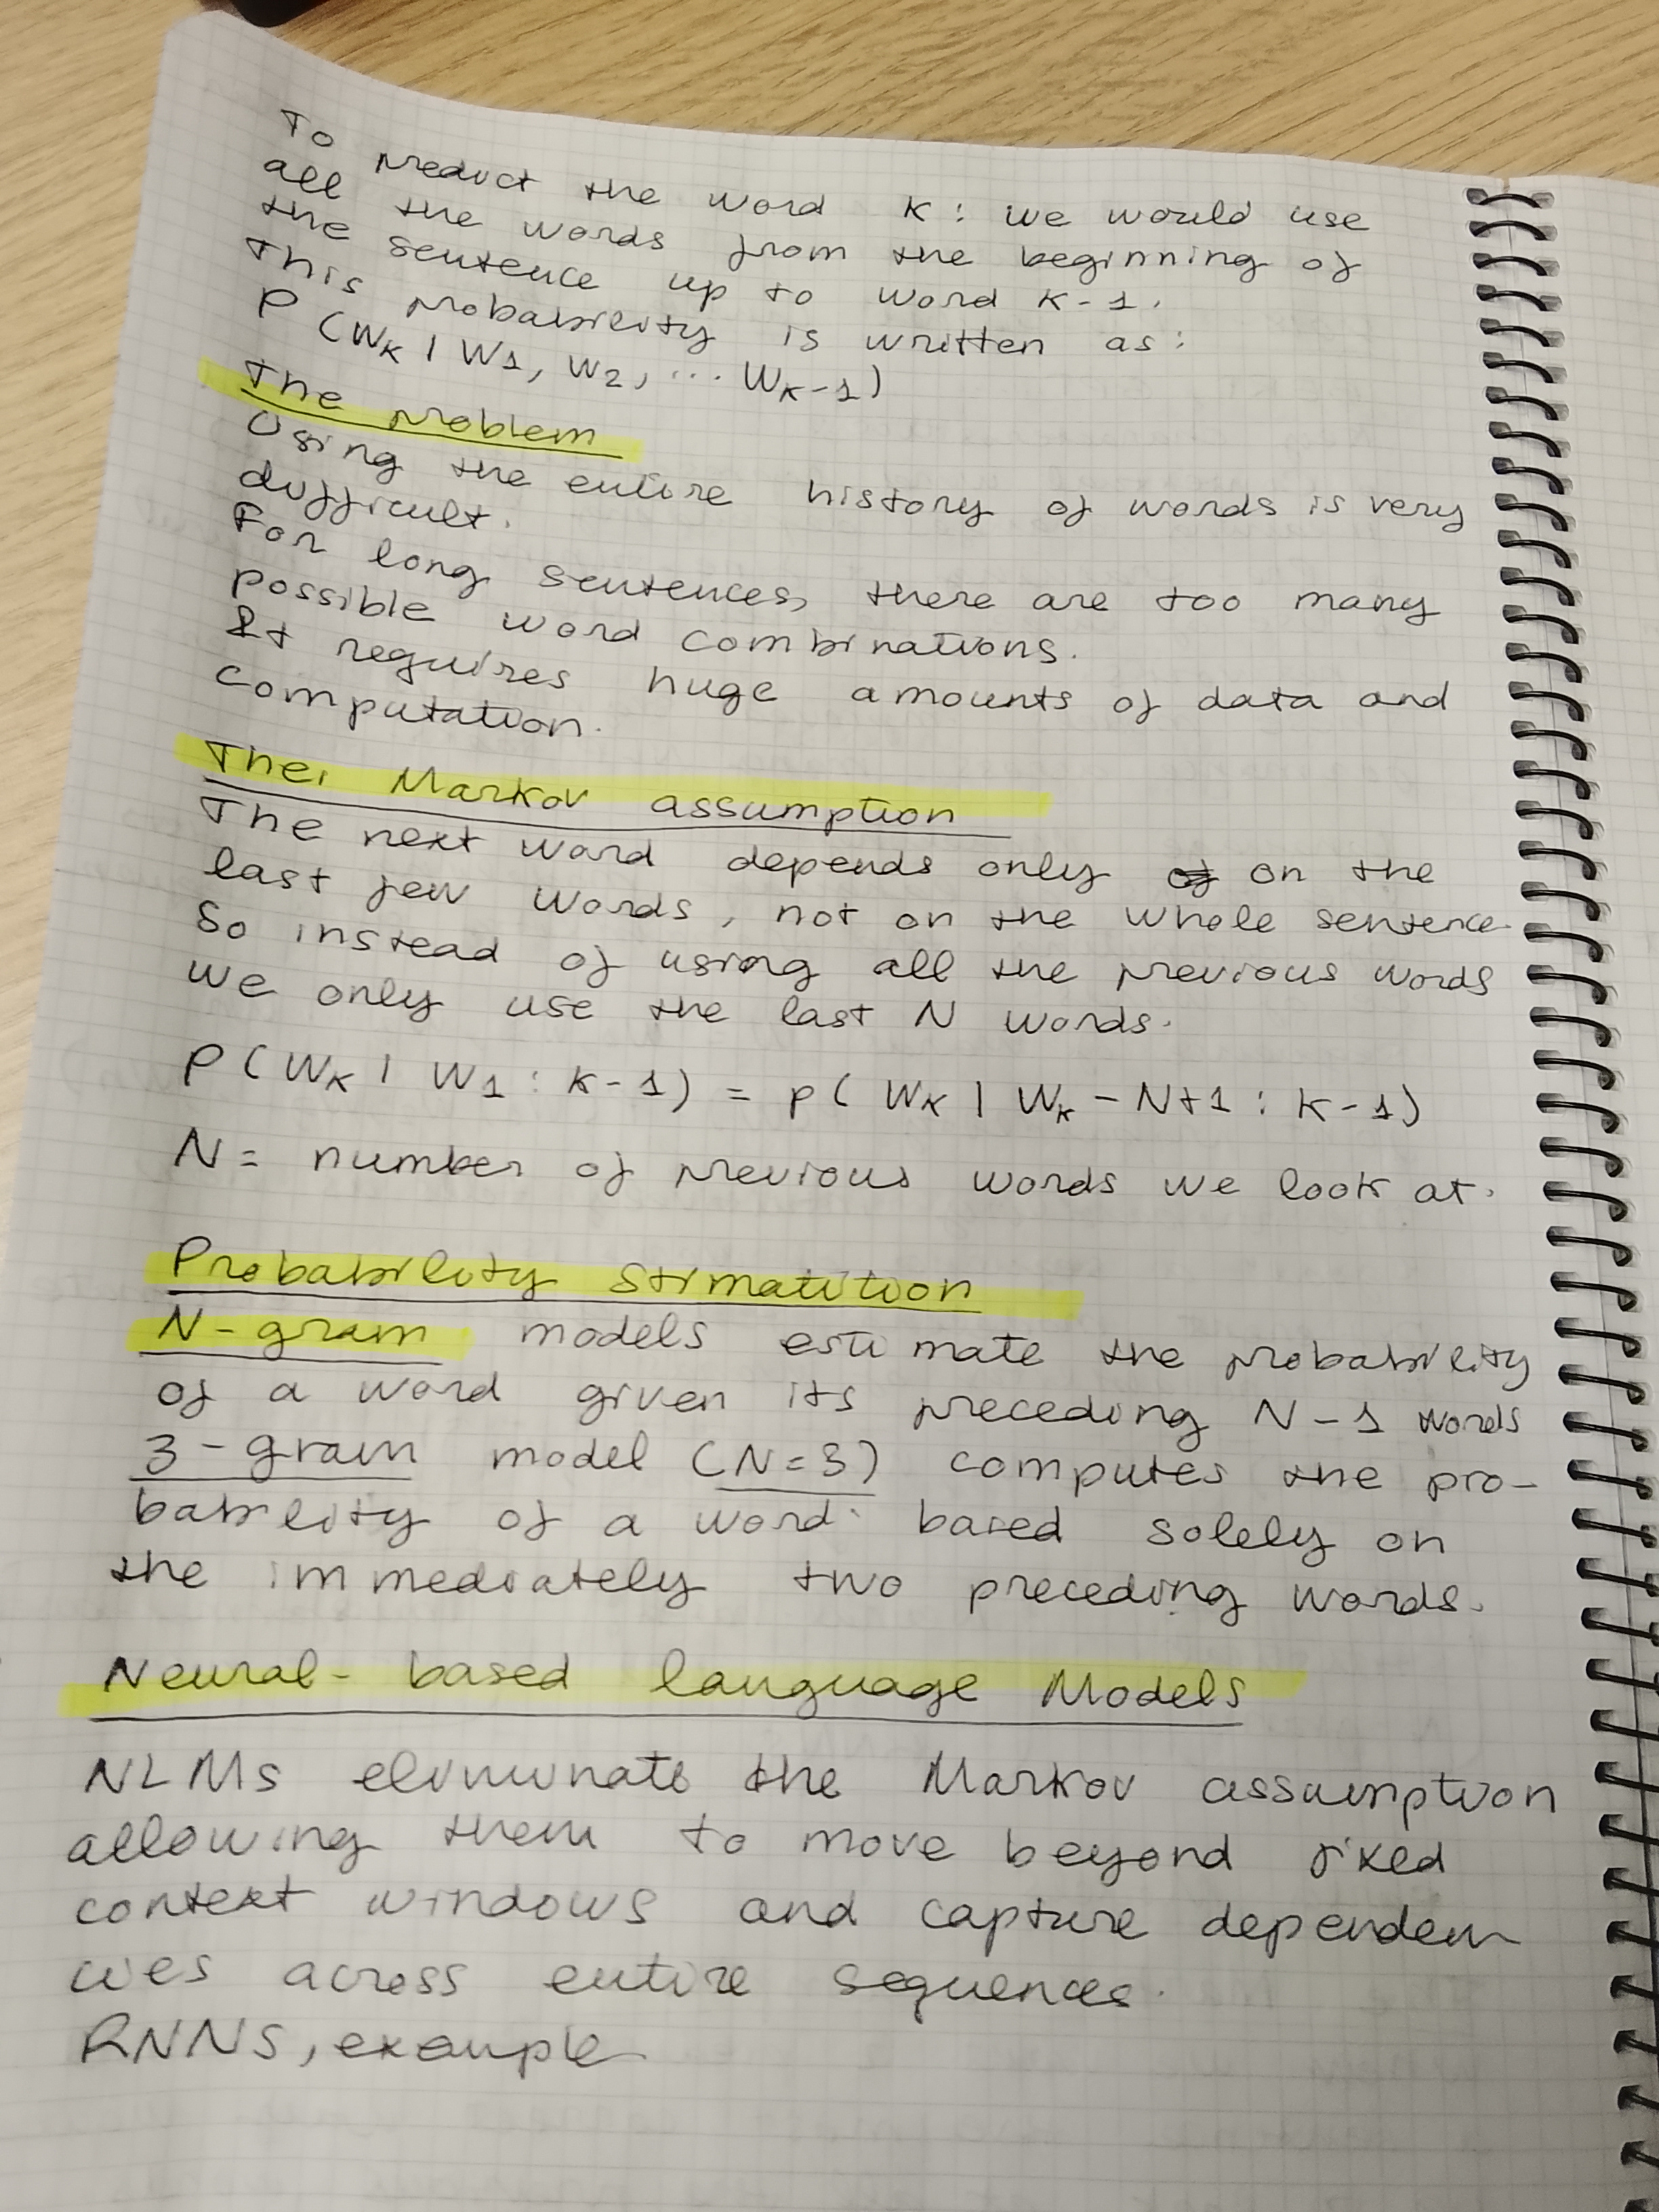 To predict the word K: we would use
all the words from the beginning of
the sentence up to word K-1.
This probability is written as:
P (WK | W1, W2, ... WK-1)
The problem
Using the entire history of words is very
difficult.
For long sentences, there are too many
possible word combinations.
It requires huge amounts of data and
computation.
The, Markov assumption
The next word depends only of on the
last few words, not on the whole sentence.
So instead of using all the previous words
we only use the last N words.
P(WK | W1 : K-1) = P( WK | WK - N+1 : K-1)
N = number of previous words we look at.
Probability stimatition
N-gram models estimate the probability
of a word given its preceding N-1 words
3-gram model (N=3) computes the pro-
bability of a word based solely on
the immediately two preceding words.
Neural-based language Models
NLMs eliminate the Markov assumption
allowing them to move beyond fixed
context windows and capture dependen
cies across entire sequences.
RNNS, example